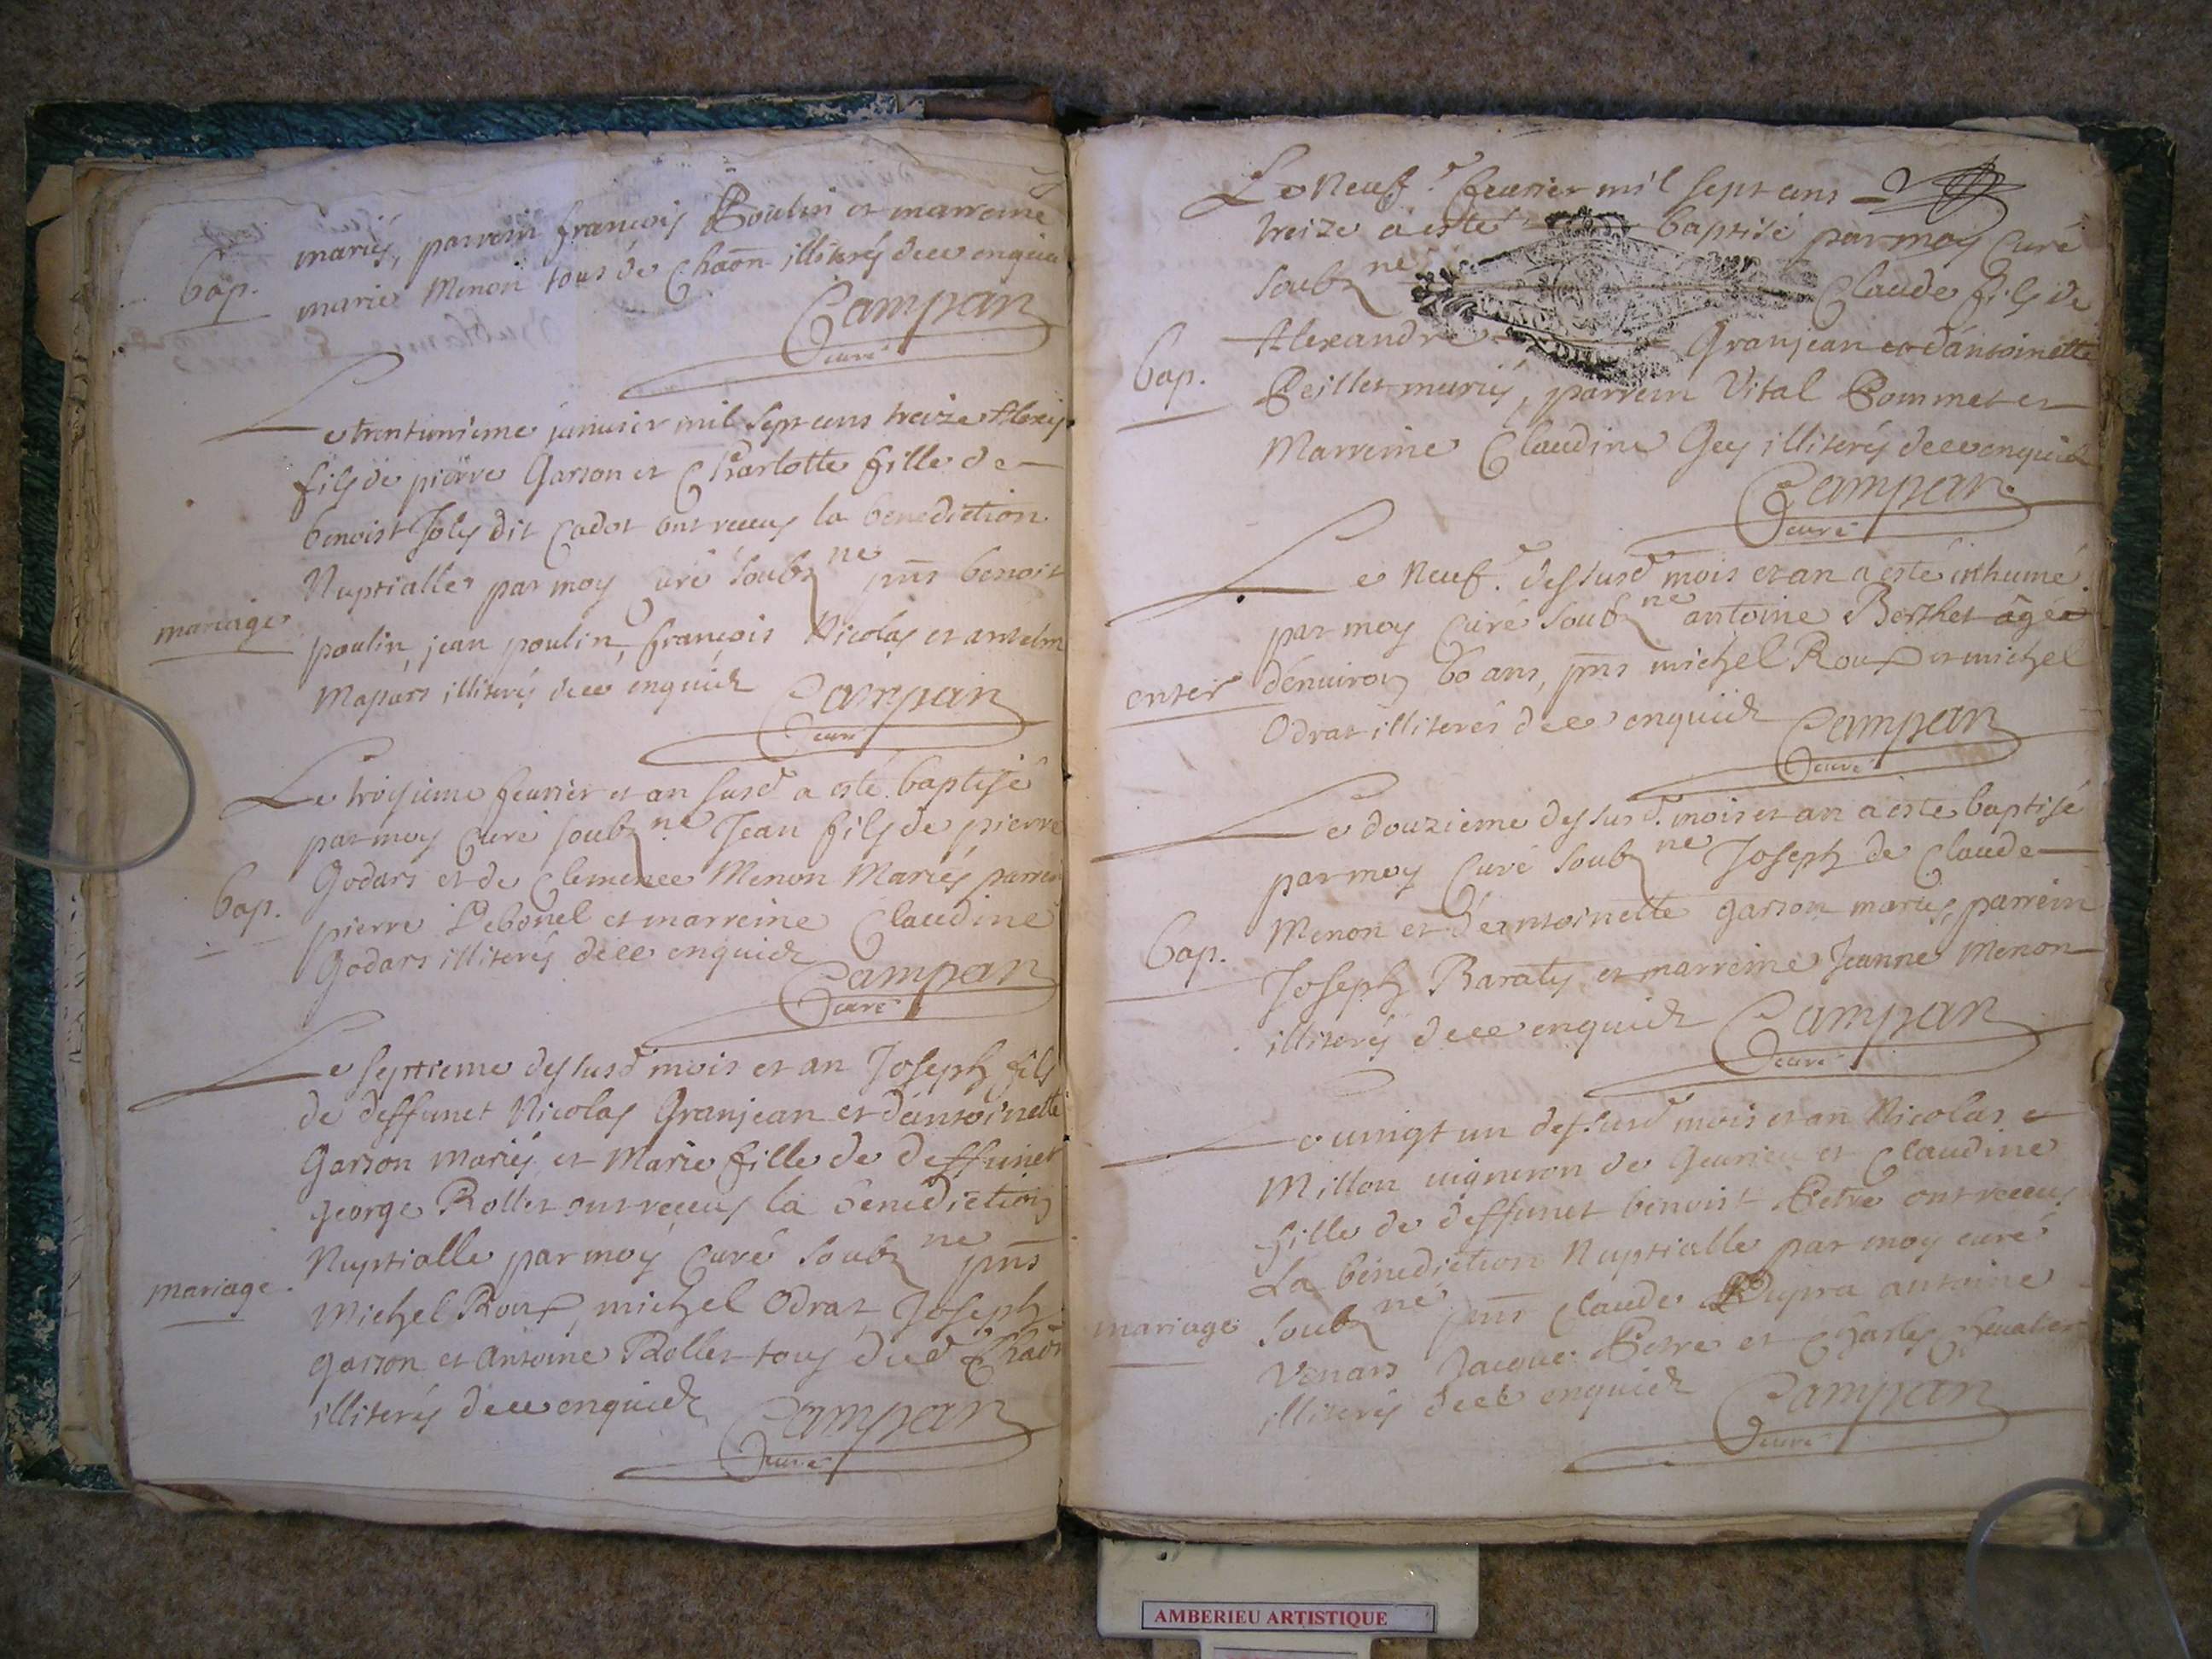 mariés, parrein francois Poulin et marreine
Bap. marie Menon tous de Chaon illiterés de ce enquis
Campan
curé
Le trentunieme janvier mil sept cens treize Alexis
fils de pierre Garson et Charlotte fille de
benoist Joly dit Cadot ont receus la benediction
Nuptialle par moy curé soubz ne pñs benoit
mariage poulin, jean poulin, françois Nicolas et antelm
Mapars illiterés de ce enquis
Campan
curé
Le troisieme feurier et an susd a esté baptisé
par moy curé soubz ne Jean fils de pierre
Godars et de Clemence Menon Mariés parrein
Bap. pierre Debonel et marreine Claudine
Godars illiterés de ce enquis
Campan
curé
Le septieme des susd mois et an Joseph fils
de deffunct Nicolas Granjean et d'antoinette
Garson mariés et Marie fille de deffunct
george Rollet ont receus la benediction
Nuptialle par moy Curé soubz ne pñs
mariage Michel Roux, michel Odrat Joseph
garson et Antoine Rollet tous dud Chaon
illiterés de ce enquis
Campan
curé
Le Neuf e feurier mil sept cens
treize a esté baptisé par moy Curé
soubz ne Claude fils de
Alexandre Granjean et d'antoinette
Bap. Peillet mariés, parrein Vital Pommet et
Marreine Claudine Gey illiterés de ce enquis
Campan
curé
Le Neuf e des susd mois et an a esté inhumé
par moy Curé soubz ne antoine Berthet agée
enter d'enuiron 60 ans, pñs michel Roux et michel
Odrat illiterés de ce enquis
Campan
curé
Le douzieme des susd mois et an a este baptisé
par moy Curé soubz ne Joseph de Claude
Bap. Menon et d'antoinette garson mariés, parrein
Joseph Baraty et marreine Jeanne Menon
illiterés de ce enquis
Campan
curé
Le uingt un des susd mois et an Nicolas
Millon uigneron de Geurieu et Claudine
fille de deffunct benoist Petre ont receus
La benediction Nuptialle par moy curé
mariage soubz ne pñs Claude Dupra antoine
Venars Jacque Petre et Charles Cheualier
illiterés de ce enquis
Campan
curé
AMBERIEU ARTISTIQUE